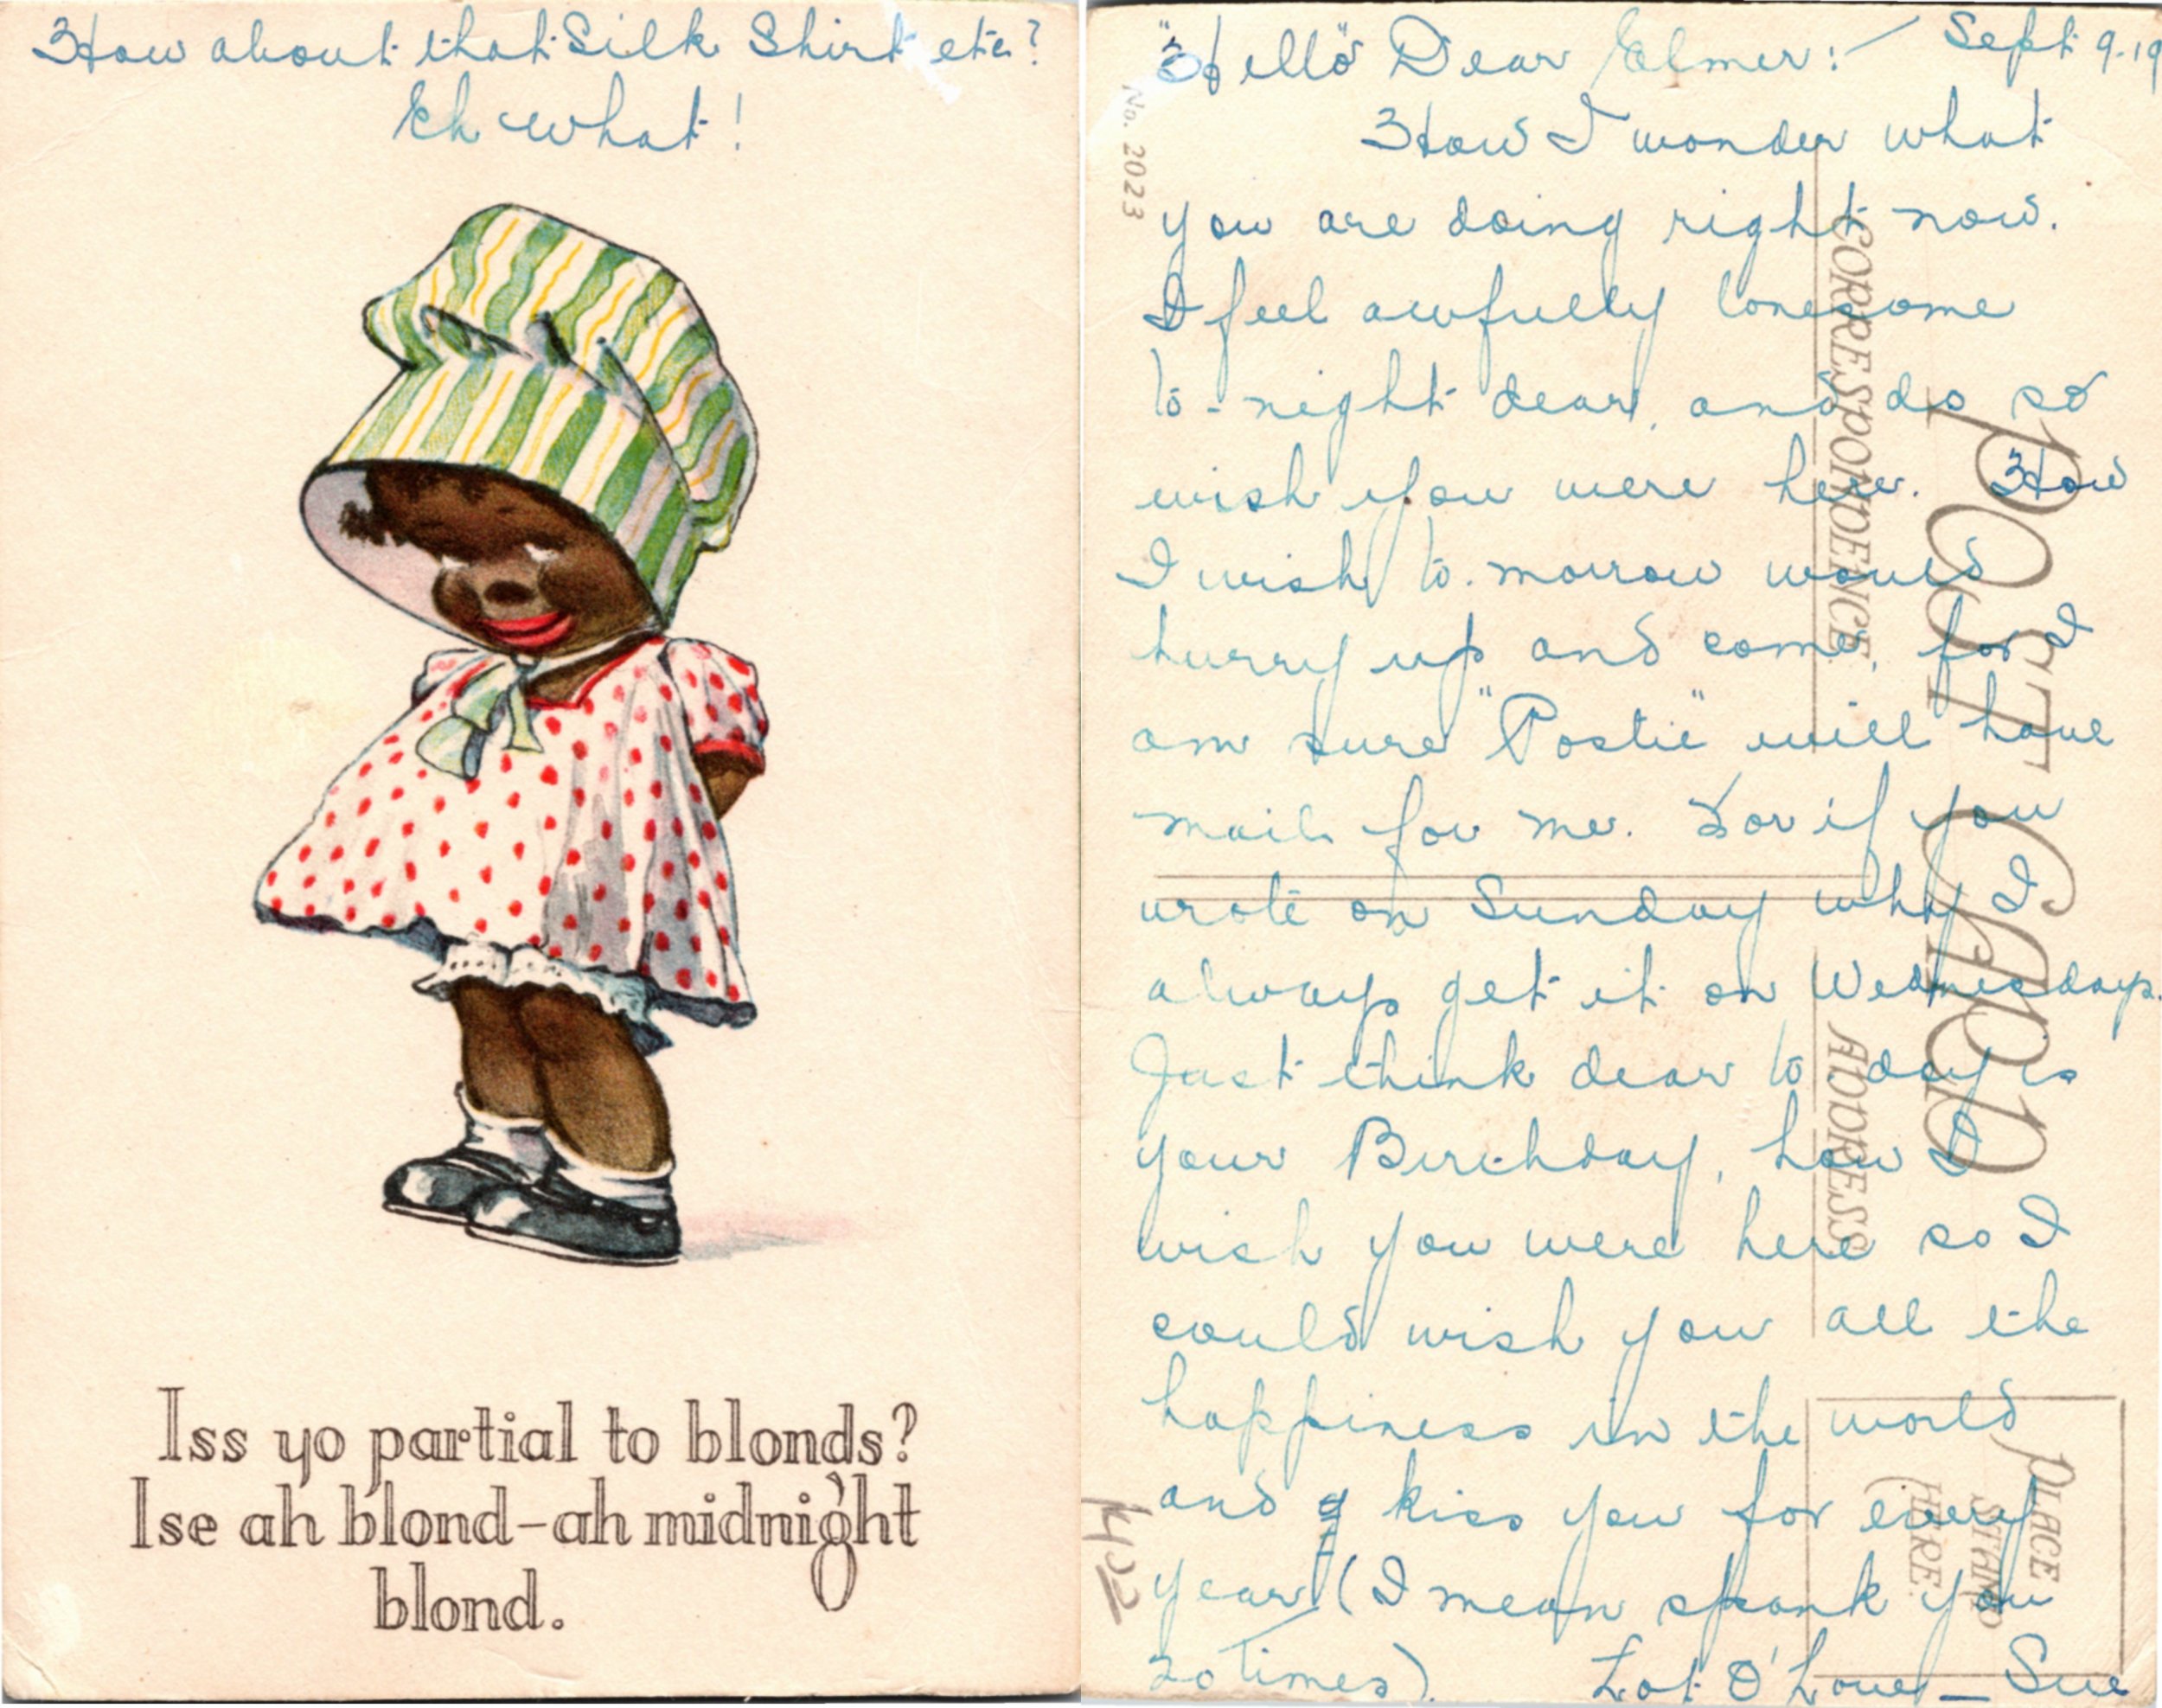 How about that Silk Shirt etc?
Eh what!
Iss yo partial to blonds?
Ise ah blond-ah midnight
blond.
"Hello" Dear Elmer:- Sept 9-19
How I wonder what
you are doing right now.
I feel awfully lonesome
to-night dear, and do so
wish you were here. How
I wish to-morrow would
hurry up and come, for I
am sure "Postie" will have
mail for me. For if you
wrote on Sunday why I
always get it on Wednesdays.
Just think dear to-day is
your Birthday, how I
wish you were here so I
could wish you all the
happiness in the world
and kiss you for every
year (I mean spank you
20 times). Lot O' Love - Sue
No. 2023
CORRESPONDENCE
ADDRESS
POST CARD
PLACE
STAMP
HERE